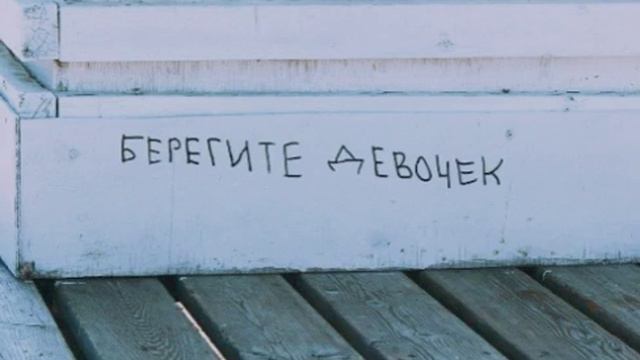 БЕРЕГИТЕ ДЕВОЧЕК